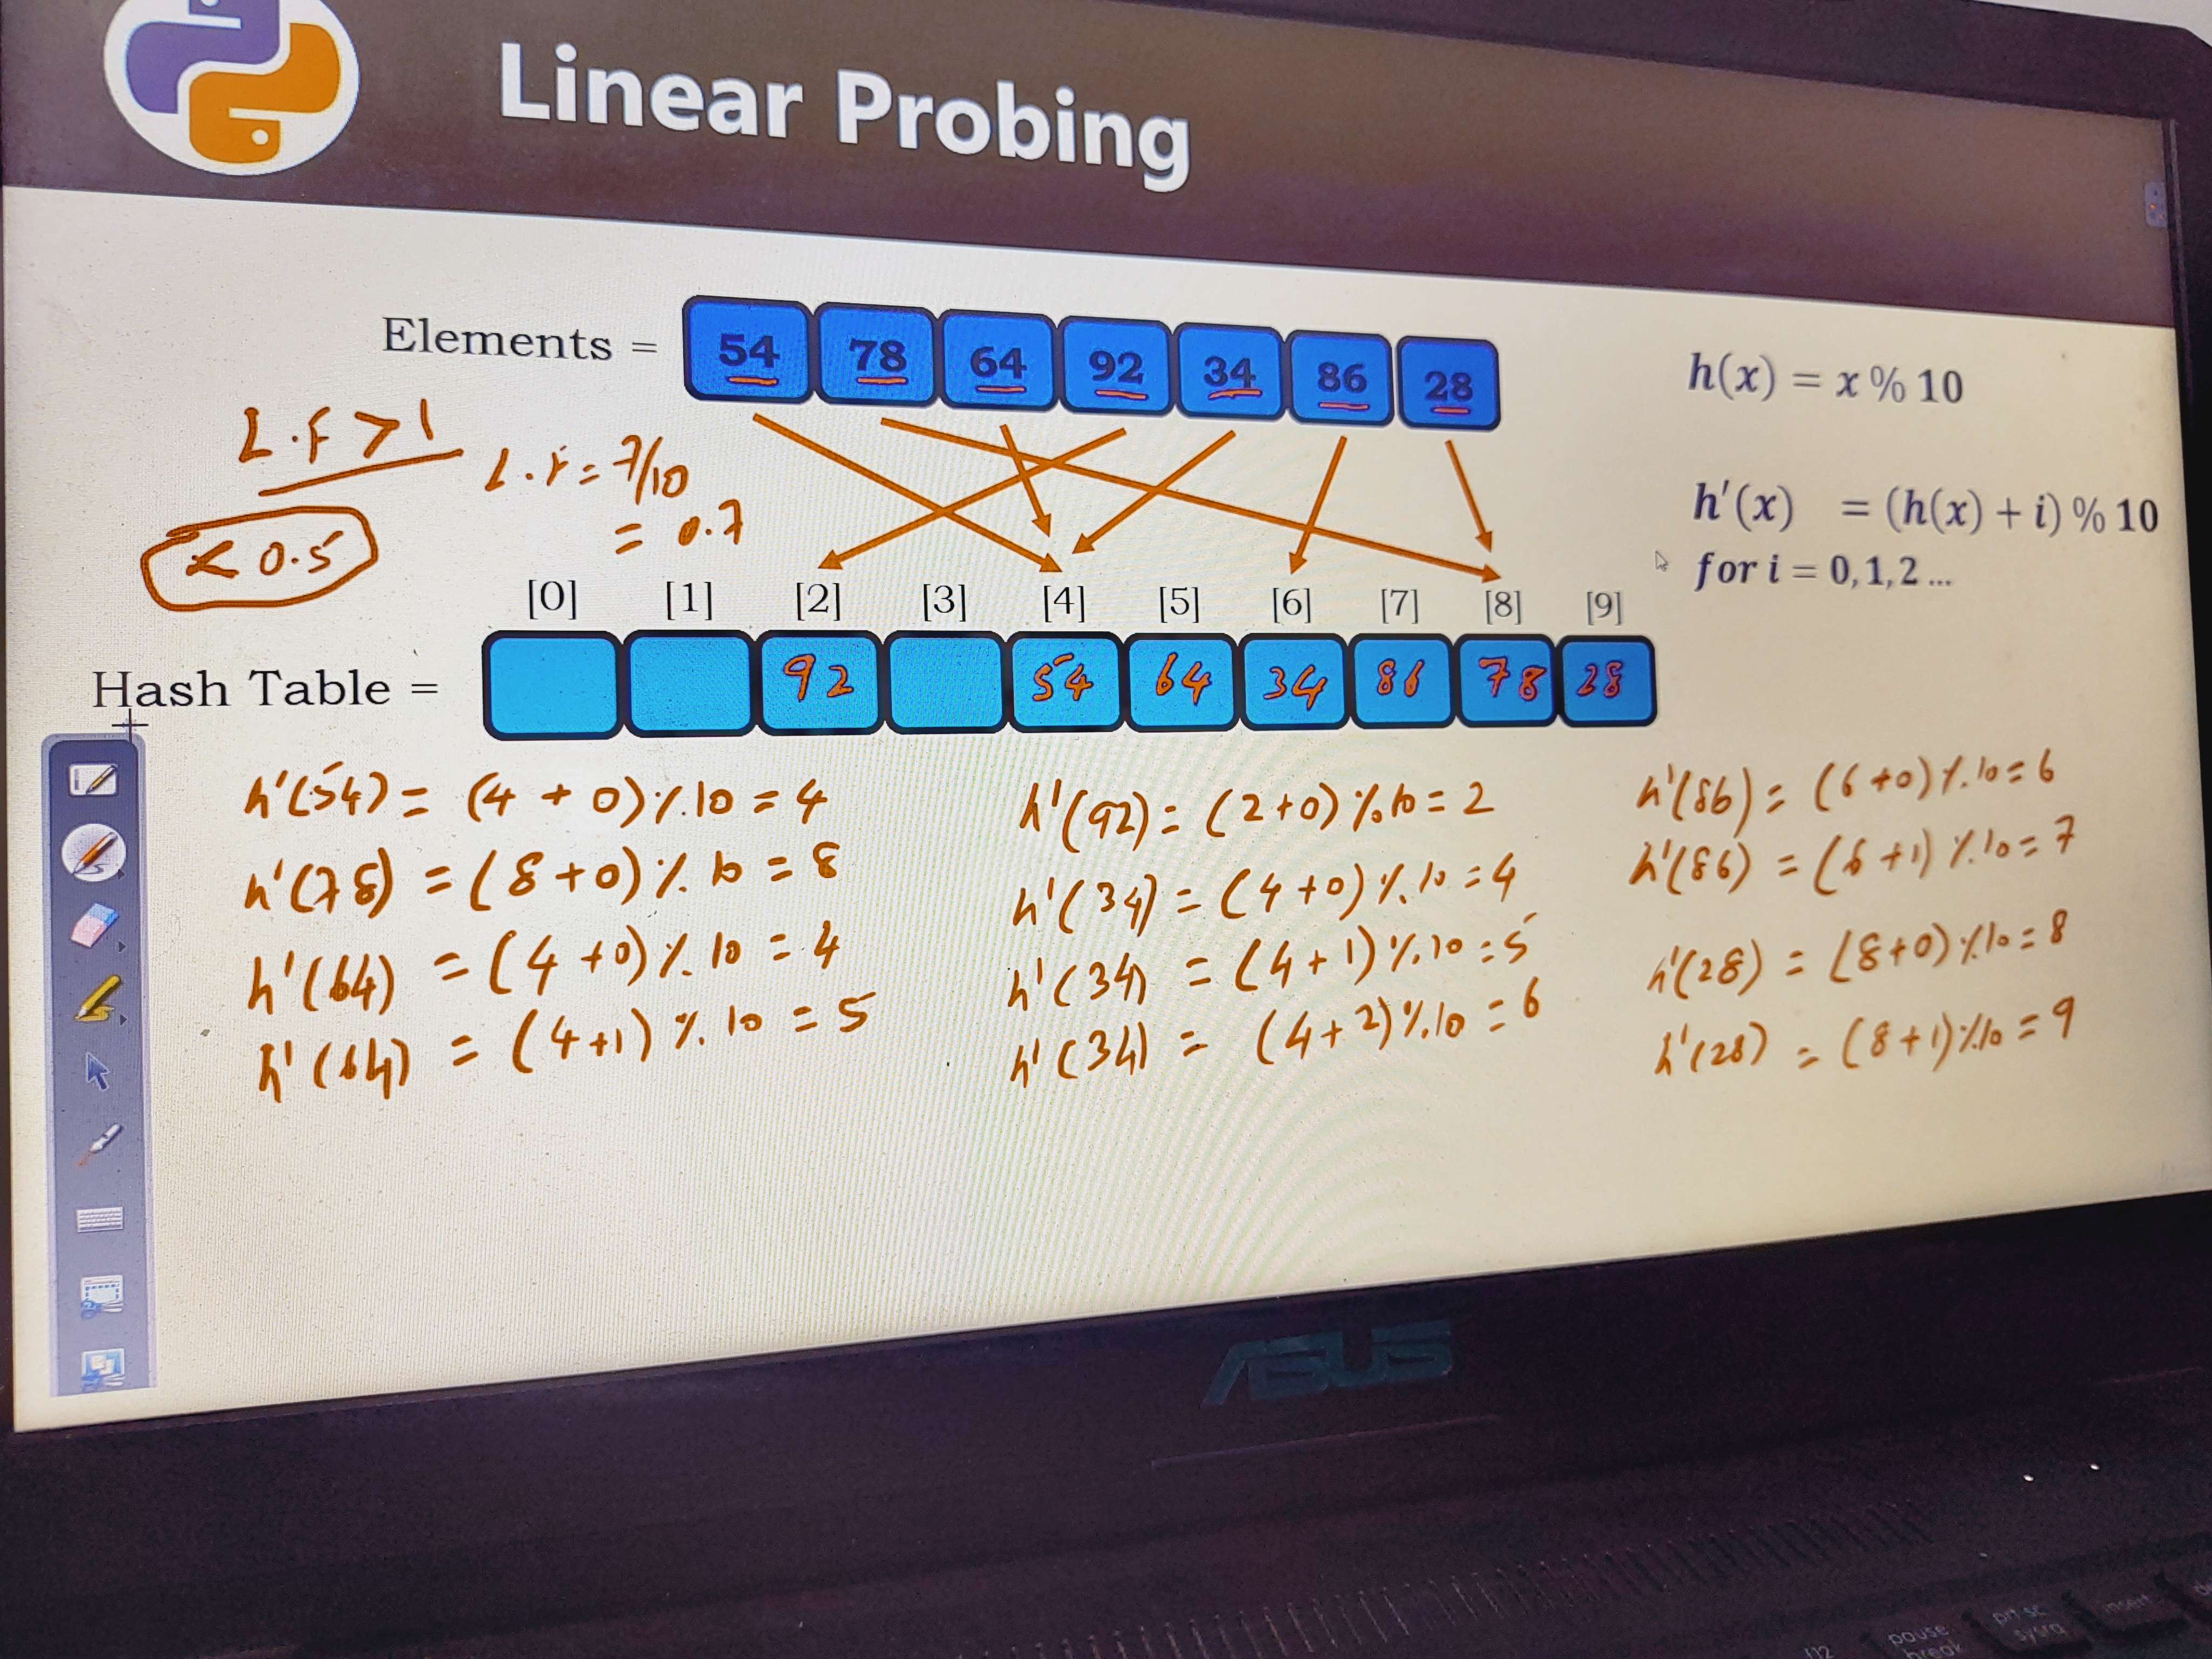 Linear Probing
Elements = 54 78 64 92 34 86 28
h(x) = x % 10
L.F > 1
L.F = 7/10
= 0.7
< 0.5
h'(x) = (h(x) + i) % 10
for i = 0, 1, 2 ...
[0] [1] [2] [3] [4] [5] [6] [7] [8] [9]
Hash Table = 92 54 64 34 86 78 28
h'(54) = (4 + 0) % 10 = 4
h'(78) = (8 + 0) % 10 = 8
h'(64) = (4 + 0) % 10 = 4
h'(64) = (4+1) % 10 = 5
h'(92) = (2+0) % 10 = 2
h'(34) = (4+0) % 10 = 4
h'(34) = (4+1) % 10 = 5
h'(34) = (4+2) % 10 = 6
h'(86) = (6+0) % 10 = 6
h'(86) = (6+1) % 10 = 7
h'(28) = (8+0) % 10 = 8
h'(28) = (8+1) % 10 = 9
ASUS
pause
break
prt sc
sysrq
insert